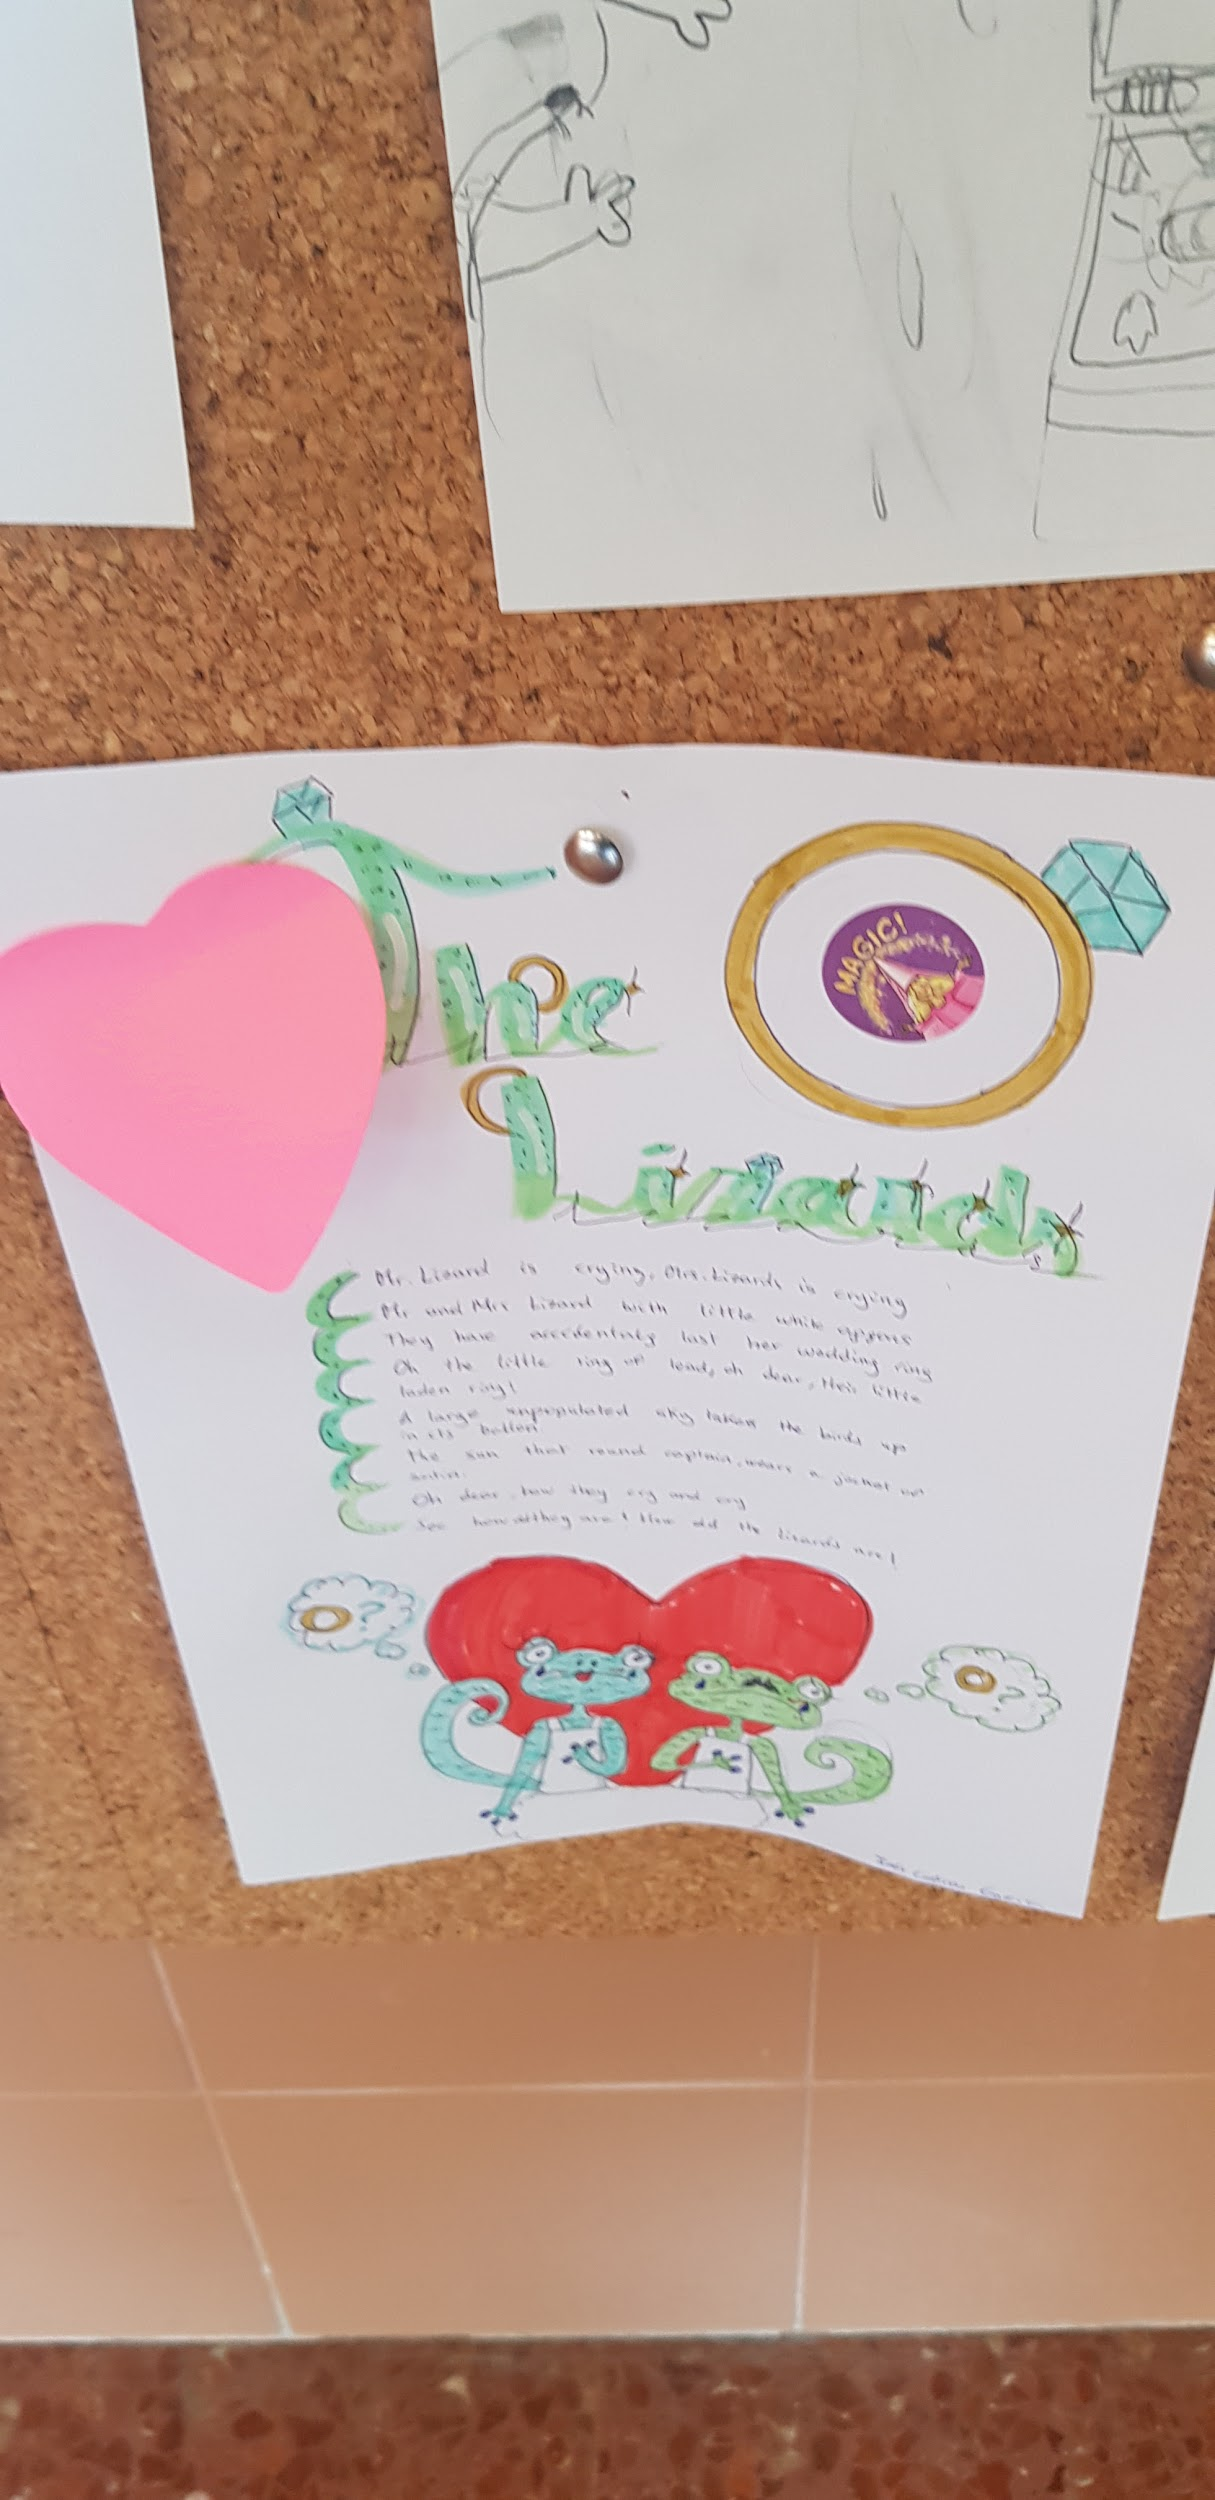 The
MAGIC!
Lizards
Mr. Lizard is crying, Mrs. Lizards is crying
Mr and Mrs Lizard with little white aprons
They have accidentaly lost her wedding ring
Oh the little ring of lead, oh dear, their little
laden ring!
A large unpopulated sky takes the birds up
in its
The sun that round captain, wears a jacket of
satin.
Oh dear, how they cry and cry
See how they are! How old the lizards are!
?
?